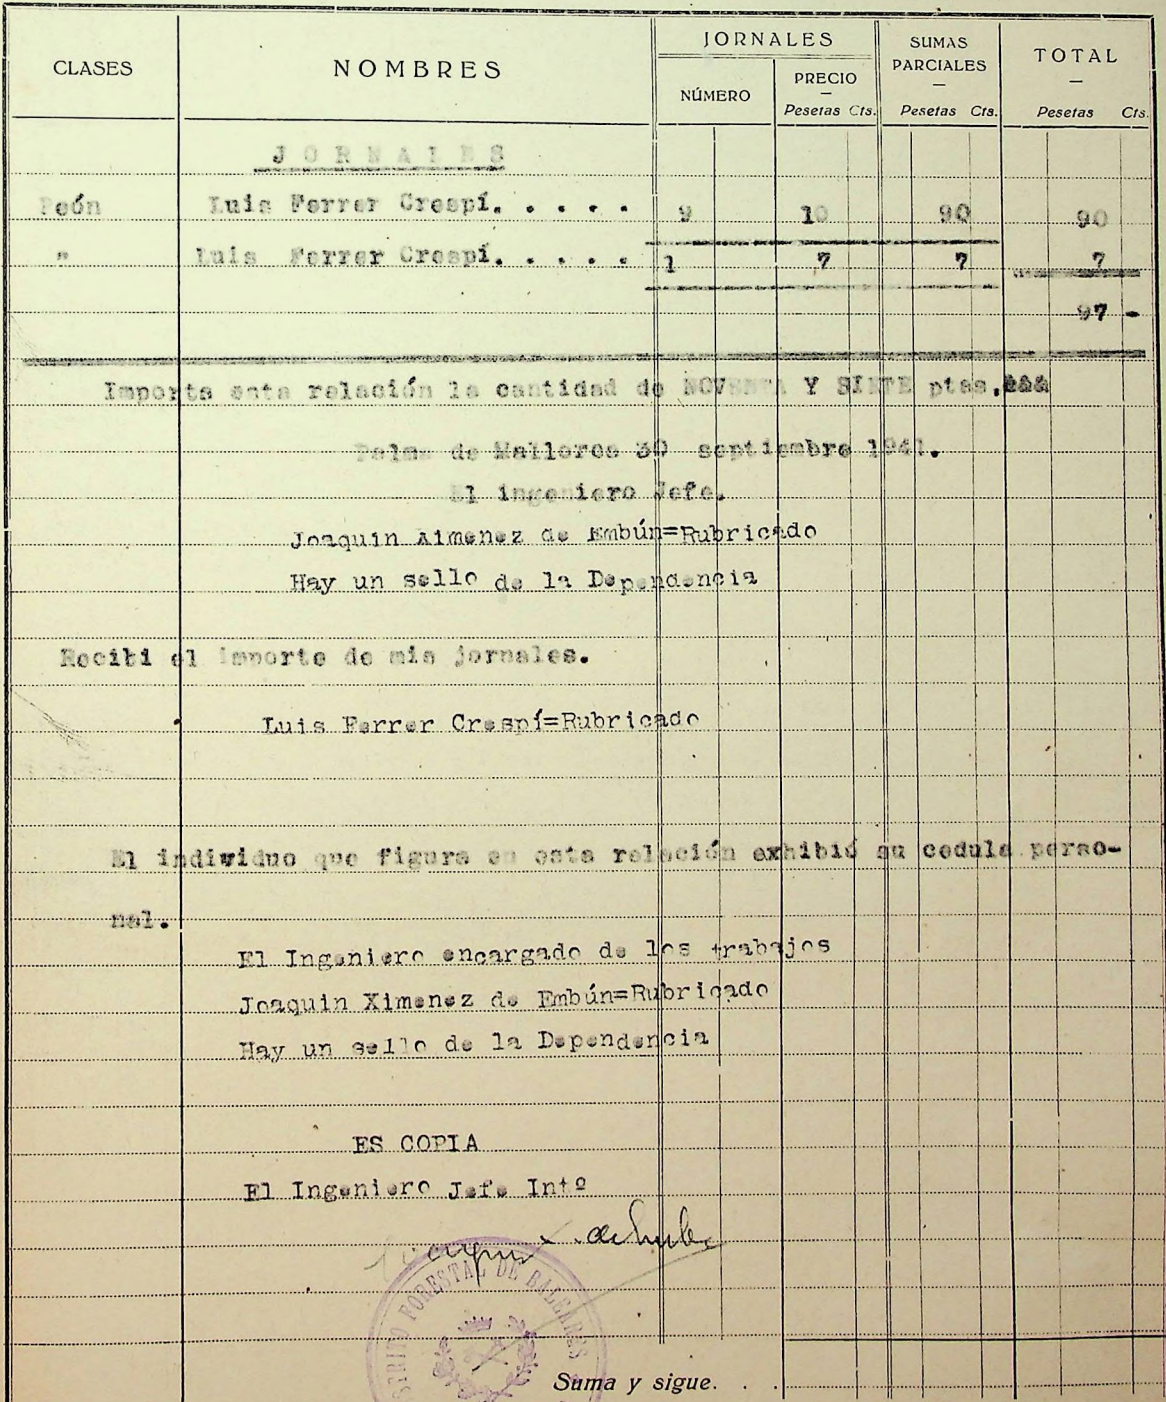 CLASES NOMBRES JORNALES SUMAS PARCIALES TOTAL
NÚMERO PRECIO
Pesetas Cts. Pesetas Cts. Pesetas Cts.
JORNALES
Peón Luis Ferrer Crespí. . . . . 9 10 90 90
" Luis Ferrer Crespí. . . . . 1 7 7 7
97 -
Importa esta relación la cantidad de NOVENTA Y SIETE ptas.
Palma de Mallorca 30 septiembre 1941.
El ingeniero Jefe.
Joaquin Ximenez de Embún=Rubricado
Hay un sello de la Dependencia
Recibi el importe de mis jornales.
Luis Ferrer Crespí=Rubricado
El individuo que figura en esta relación exhibió su cedula perso-
nal.
El Ingeniero encargado de los trabajos
Joaquin Ximenez de Embún=Rubricado
Hay un sello de la Dependencia
ES COPIA
El Ingeniero Jefe Intº
FORESTAL DE BALEARES
Suma y sigue. . .